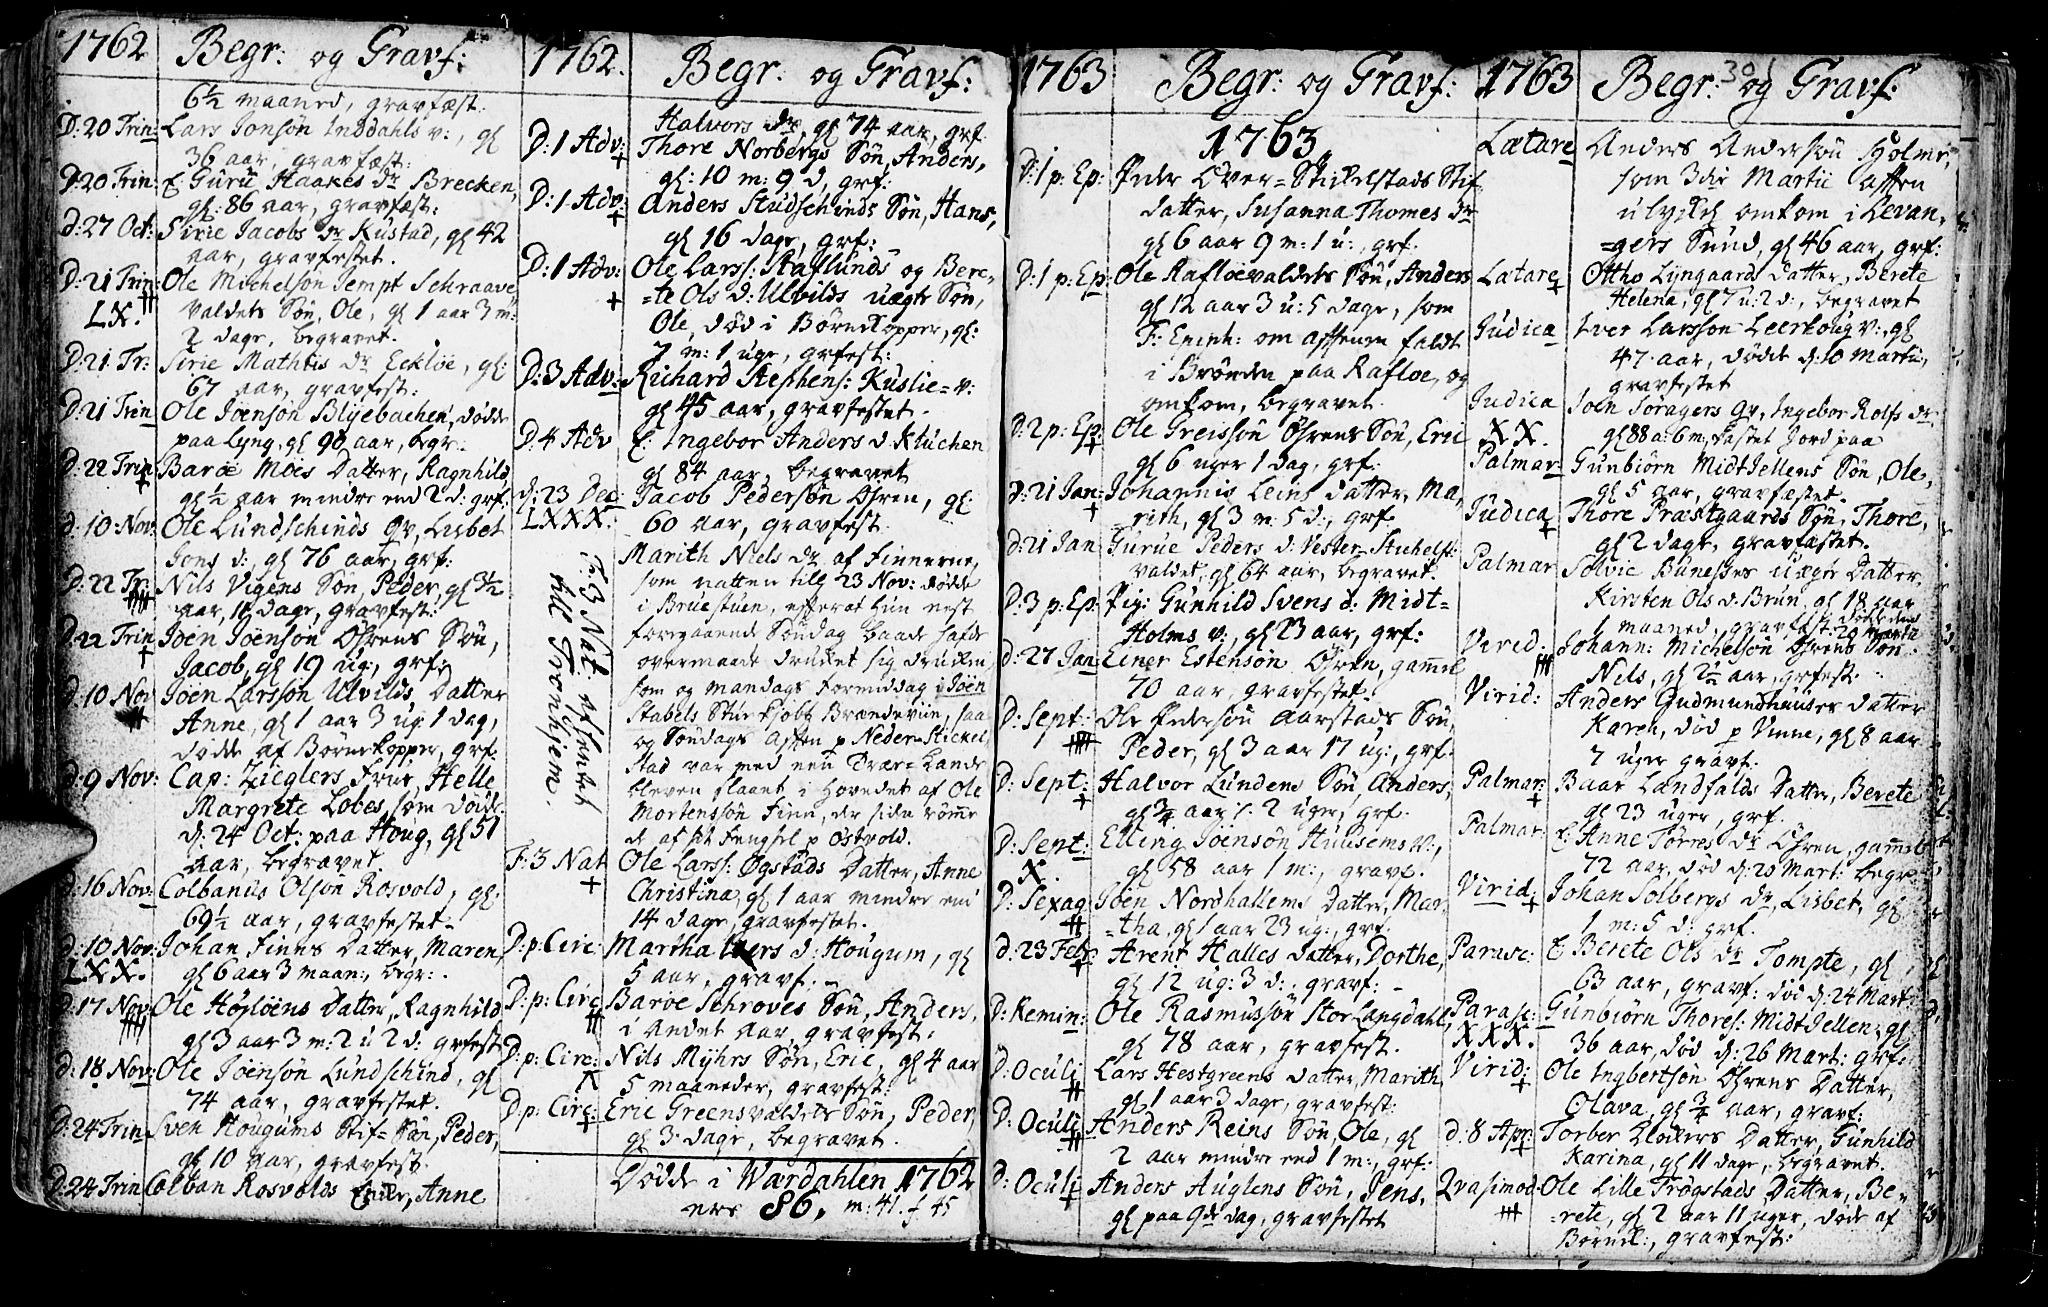 1762 Begr: og Gravf:
6½ maaned, gravfæst:
D: 20 Trin: Lars Jonsøn Inddahls v:, gl
36 aar, gravfæst:
D: 20 Trin: E. Guru Haakes dr Brecken,
gl: 86 aar, gravfæst:
d: 27 Oct: Sirie Jacobs dr Kustad, gl 42
aar, gravfestet.
D: 21 Trin: Ole Michelsøn Tempt Schraave
LX. valdets Søn, Ole, gl 1 aar 3 m:
2 dage, begravet.
D: 21 Tr: Sirie Mathtis dr Eckløe, gl:
67 aar, gravfest:
D: 21 Trin Ole Joensøn Blyebachen, dødde
paa Lyng, gl 90 aar, begr:
D: 22 Trin Baroe Moes Datter, Ragnhild,
gl ½ aar mindre end 2 d: grf:
d: 10 Nov: Ole Lundschinds qv, Lisbet
Jons d:, gl 76 aar, grf:
D: 22 Tr: Nils Vigens Søn, Peder, gl 3½
aar, 11 dage, gravfest:
D: 22 Trin Joen Joensøn Øhrens Søn,
Jacob, gl 19 ug:, grf:
d: 10 Nov Joen Larssøn Ulvilds Datter
Anne, gl 1 aar 3 ug: 1 dag,
dødde af Børnekopper, grf.
d: 9 Nov: Cap: Zieglers Frue, Helle
Margrete Lobes, som døde
d: 24 Oct: paa Houg, gl 51
aar, begravet.
d: 16 Nov: Colbanus Olsøn Rosvold, gl:
69½ aar, gravfestet
d: 10 Nov: Johan Finns Datter, Maren,
LXX. gl 6 aar 3 maan:, begr:.
d: 17 Nov: Ole Høyloens Datter, Ragnhild
gl 3 aar 3 m: 2 u 2 d: grfest
d: 18 Nov: Ole Joensøn Lundschind, gl
74 aar, gravfestet.
D: 24 Trin Sven Hougums Stif-Søn, Peder,
gl 10 aar, gravfest.
D: 24 Trin Colban Rosvolds Enke, Anne
1762. Begr: og Gravf:
Halvors dr, gl 74 aar, grf.
D: 1 Adv: Thore Norbergs Søn, Anders,
gl: 10 m: 9 d, grf:
D: 1 Adv: Anders Studschinds Søn, Hans,
gl 16 dage, grf:
D: 1 Adv: Ole Larss: Staflunds og Bere-
=te Ols d: Ulvilds uægte Søn,
Ole, død i Børnekopper, gl:
7 m: 1 uge, grfest:
D: 3 Adv: Richard Stephens: Kuslie-v:
gl 45 aar, gravfestet.
D: 4 Adv E: Ingebor Anders d: Kluchen
gl 84 aar, begravet
d: 23 Dec: Jacob Pedersøn Øhren, gl:
LXXX. 60 aar, gravfest.
F: 3 Nat: afhentet
till Tronhjem.
Marith Niels dr af Finnerne,
som natten till 23 Nov: dødde
i Bruestuen, efterat hun nest
foregaaende Søndag baade hafde
overmaade drukket sig drucken
som og Mandags Formiddag i Joen
Stabels Stue kjøbt Brændeviin, saa
og Søndags Aften p Neder-Stickel
stad var med een Træe-
bleven slaaet i hovedet af Ole
Mortenssøn Finn, der siden rømm
de af sit Fengsel p Østvold.
F: 3 Nat Ole Larss: Øgstads Datter, Anne
Christina, gl 1 aar mindre end
14 dage, gravfestet.
D: p: Circ: Martha Iwers d: Hougum, gl
5 aar, gravf.
D: p: Circ Baroe Schroves Søn, Anders,
i andet aar, gravfest.
D: p: Circ: Nils Myhrs Søn, Eric, gl 4 aar
X 5 maaneder, gravfest:
D: p: Circ: Eric Greensvaldets Søn, Peder,
gl 3 dage, begravet.
Dødde i Wærdahlen 1762
ere 86. m: 41. f 45
1763 Begr: og Gravf:
1763
D: 1 p: Ep: Peder Over-Stickelstads Stif
datter, Susanna Thomes dr
gl 6 aar 9 m: 1 u:, grf.
D: 1 p: Ep: Ole Rafloevaldets Søn, Anders
gl 12 aar 3 u: 5 dage, som
F: Epiph: om aftenen faldt
i Brønden paa Rafloe, og
omkom, begravet.
D: 2 p: Ep: Ole Greissøn Øhrens Søn, Eric
gl 6 uger 1 dag, grf:
d: 21 Jan: Johannis Leins Datter, Ma,
rith, gl 3 m: 5 d:, grf.
d: 21 Jan Gurue Peders d: Vester-Stubelst:
valdet, gl 64 aar, begravet.
D: 3 p: Ep: Pig: Gunhild Svens d: Midt=
Holms v:, gl 23 aar, grf:
d: 27 Jan: Einer Estensøn Øhren, gammel
70 aar, gravfestet.
D: Sept: Ole Pedersøn Aarstads Søn,
Peder, gl 3 aar 17 ug:, grf.
D: Sept: Halvor Lundens Søn, Anders,
gl ¾ aar 2 uger, grf.
D: Sent: Elling Joensøn Huusems v:,
X. gl 58 aar 1 m:, gravf.
D: Sexag Joen Nordhallems Datter, Mar,
=tha, gl 1 aar 23 ug:, grf.
d: 23 Febr Arent Halles Datter, Dorthe,
gl 12 ug: 3 d:, gravf:
D: Remin: Ole Rasmussøn Stor Langdahl,
gl 78 aar, gravfest.
D: Oculi Lars Hestgreens Datter, Marith,
gl 1 aar 3 dage, gravfest:
D: Oculi Anders Reins Søn, Ole, gl
2 aar mindre end 1 m:, grf:
D: Oculi Anders Auglens Søn, Jens,
gl paa 9de dag, gravfestet
1763 Begr: og Gravf:
301
Lætare Anders Andersøn Holmv,
som 3die Martii Aften
ulyckl omkom i Levan,
=gers Sund, gl 46 aar, grf:
Lætare Ottho Lyngaard Datter, Berete
Helena, gl 7 u: 2 d:, begravet
Judica Iver Larssøn Leerhoug v:, gl
47 aar, dødde d: 10 Martii,
gravfestet
Judica Joen Søragers qv, Ingebor Rolfs dr
XX. gl 88 a: 6 m, kastet Jord paa
Palmar: Gunbiørn MidtJellens Søn, Ole,
gl 5 aar, gravfæstet.
Judica Thore Præstgaards Søn, Thore,
gl 2 dage, gravfæstet.
Palmar Solvie Bunesses uægte Datter,
Kirsten Ols d: Brun, gl 18 aar
1 maaned, gravfest: dødde den 20 Martii
Virid: Johan: Michelsøn Øhrens Søn
Nels, gl 2½ aar, grfest:
Virid: Anders Gudmundhuuses Datter
Karen, død p Vinne, gl 8 aar
7 uger gravf.
Palmar: Baar Landfalds Datter, Berete
gl 23 uger, grf.
Palmar: E: Anne Torres dr Øhren, gammel
72 aar, død d: 20 Mart: begr:
Virid: Johan Solbergs dr, Lisbet, gl
1 m: 5 d: grf.
Parasc: E: Berete Ols dr Tompte, gl
63 aar, gravf: død d: 24 Marti
Parasc: Gunbiørn Thores: MidtJellen, gl
XXX. 36 aar, død d: 26 Mart: grf:
Virid: Ole Ingbertsøn Øhrens Datter,
Olava, gl ¾ aar, gravf:
d: 8 Apr: Torber Klockers Datter, Gunhild
Karina, gl 11 dage, begravet.
Qvasimod: Ole Lille Trøgstads Datter, Be-
=rete, gl 2 aar 11 uger, døde af
Børnek:, gravfest: